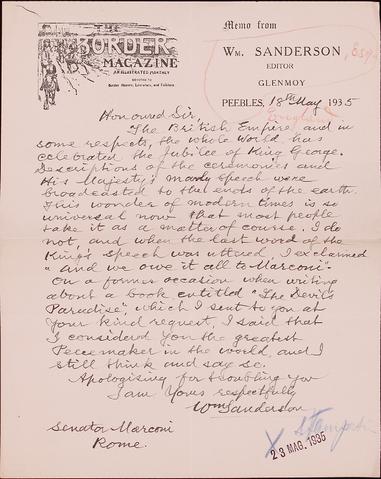 THE
BORDER
MAGAZINE
AN ILLUSTRATED MONTHLY
DEVOTED TO
Border History, Literature, and Folklore
Memo from
WM. SANDERSON
EDITOR
GLENMOY
PEEBLES, 18th May 1935
England
Honoured Sir,
The British Empire, and in
some respects, the whole World has
celebrated the Jubilee of King George.
Descriptions of the ceremonies and
His Majesty's manly speech were
broadcasted to the ends of the earth.
This wonder of modern times is so
universal now that most people
take it as a matter of course. I do
not, and when the last word of the
King's speech was uttered, I exclaimed
"and we owe it all to Marconi"
On a former occasion when writing
about a book entitled "The Devil's
Paradise", which I sent to you at
your kind request, I said that
I considered you the greatest
Peacemaker in the world, and I
still think and say so.
Apologising for troubling you
I am Yours respectfully
Wm Sanderson
Senator Marconi
Rome.
23 MAG. 1935